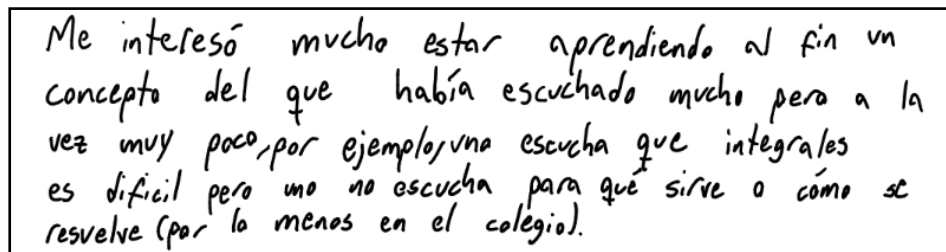 Me interesó mucho estar aprendiendo al fin un
concepto del que había escuchado mucho pero a la
vez muy poco, por ejemplo, uno escucha que integrales
es dificil pero uno no escucha para qué sirve o cómo se
resuelve (por lo menos en el colegio).